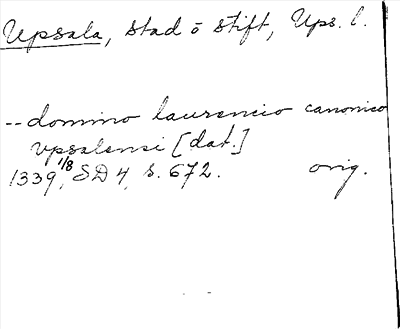 Upsala, stad o stift, Ups. l.
-- domino laurencio canonico
vpsalensi [dat.]
1339 1/8, SD 4, s. 672. orig.